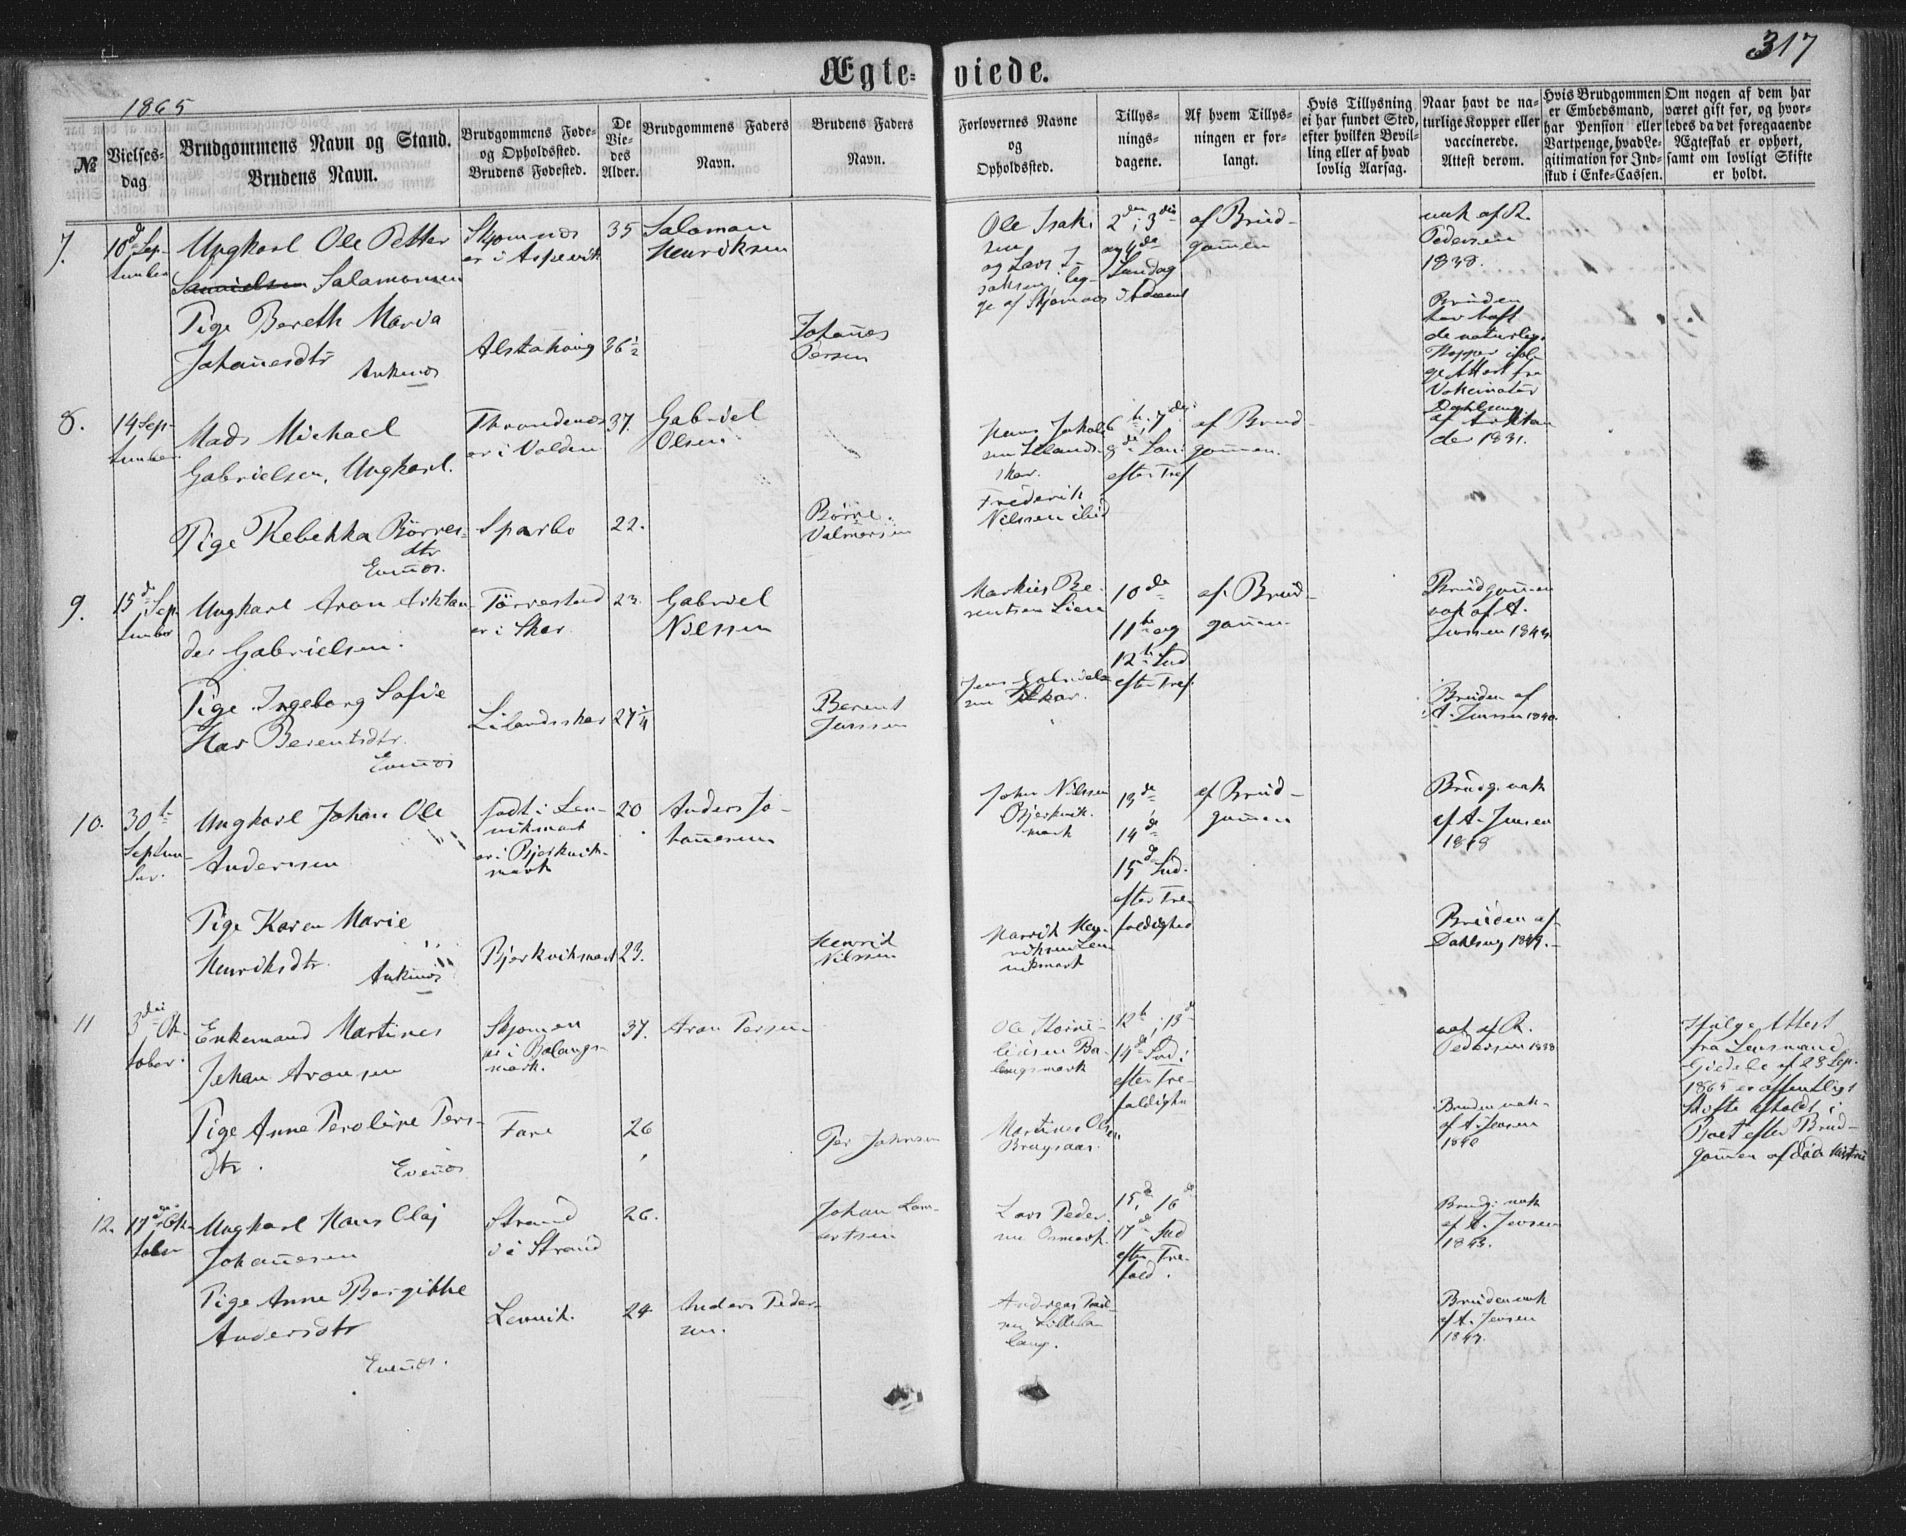 317
Ægteviede.
1865
№
Vielsesdag
Brudgommens Navn og Stand.
Brudens Navn.
Brudgommens Fødeog Opholdssted.
Brudens Fødested.
De Viedes Alder.
Brudgommens Faders
Navn.
Brudens Faders
Navn.
Forlovernes Navne
og
Opholdssted.
Tillysningsdagene.
Af hvem Tillysningen er forlangt.
Hvis Tillysning
ei har fundet Sted,
efter hvilken Bevilling eller af hvad
lovlig Aarsag.
Naar havt de naturlige Kopper eller
vaccinerede.
Attest derom.
Hvis Brudgommen
er Embedsmand,
har Pension eller
Vartpenge, hvad Legitimation for Indskud i Enke-Cassen.
Om nogen af dem har
været gift før, og hvorledes da det foregaaende
Ægteskab er ophørt,
samt om lovligt Skifte
er holdt.
7.
10d September
Ungkarl Ole Petter
Salamonsen
Skjomnes
er i Aspevik
35
Salamon
Henriksen
Ole Isaksen
og Lars Isaksen, begge af Skjomnes
2den, 3die
og 4de
Søndag
i Advent
af Brudgommen
vak af R.
Pedersen
1838.
Pige Bereth Maria
Johannesdtr
Ankenes
Alstahaug
36½
Johannes
Persen
Bruden
har haft
de naturlige
Kopper ifølge Attest fra
Vakcinatør
Dahlseng
8.
14 September
Mads Michael
Gabrielsen, Ungkarl.
Throndenes
er i Volden
37.
Gabriel
Olsen
Hans Jakobsen Lilandsskar.
6te, 7de,
8de Søn:
efter Tref
af Brudgommen.
1831.
Pige Rebekka Börresdtr
Evenes.
Sparbo
22.
Börre
Valmersen
Frederik
Nilssen ibid
9.
15de September
Ungkarl Aron Arktander Gabrielsen.
Tørrestad
er i Skar
23.
Gabriel
Nilssen
Markus Berentsen Lien
10de
11te og
12te Snd
efter Tref
af Brudgommen
Brudgommen
vak af A.
Jenssen 1843.
Pige Ingeborg Sofie
Berentsdtr.
Evenes
Lilandsskar
27¼
Berent
Jenssen
Jens Gabrielsen Skar.
Bruden af
A. Jenssen 1840.
10.
30te
September.
Ungkarl Johan Ole
Anderssen
født i Lenvikmark
er i Bjerkvikmark
20
Anders Johannesen
John Nilssen
Bjerkvikmark
13de
14de
15de Snd.
efter Trefoldighed
af Brudgommen
Brudg. vak
af A. Jensen
1848
Pige Karen Marie
Henriksdtr.
Ankenes
Bjerkvikmark
23.
Henrik
Nilssen
Henrik Henriksen Lenvikmark
Bruden af
Dahlseng 1849.
11
3die Oktober.
Enkemand Martines
Johan Aronsen
Skjomen
er i Balangsmark.
37.
Aron Persen
12te, 13de
14de Snd:
efter Trefoldighed
vak af R.
Pedersen 1838
Ifølge Attest
fra Lensmand
af 28 Sep.
1865 er offentligt
Skifte afholdt i
Boet efter Brudgommen
Pige Anne Peroline Persdtr.
Evenes
Fare
26
Per Johnsen
Martines Olsen
Bragsaas.
Bruden vak
af A. Jensen
1840
12.
17de Oktober
Ungkarl Hans Olaj
Johannesen
Strand
i Strand
26.
Johan Lorentsen
Lars Pedersen Osmark.
15de, 16de
17de Snd
efter Trefold.
Brudg. vak
af A. Jensen
1843.
Pige Anne Bergitthe
Andersdtr
Evenes.
Lenvik.
24
Anders Pedersen.
Bruden vak
af A. Jensen